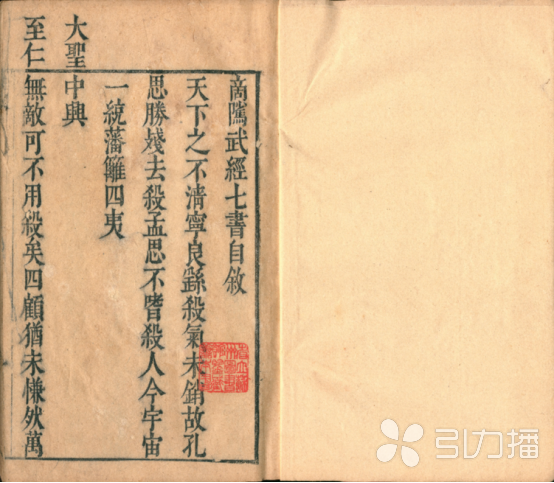 商隲武經七書自敘
天下之不清寧良繇殺氣未銷故孔
思勝殘去殺孟思不嗜殺人今宇宙
一統藩籬四夷
大聖中興
至仁無敵可不用殺矣四顧猶未慊然萬
引力播